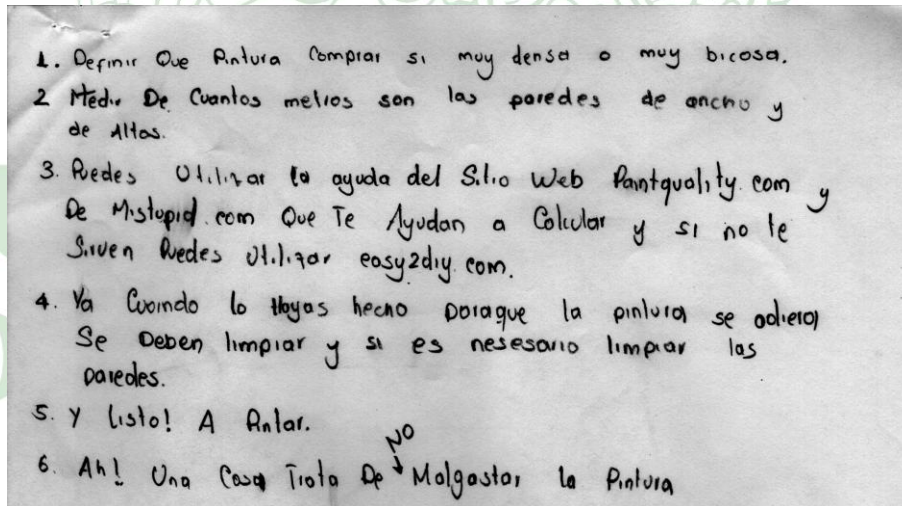 1. Definir Que Pintura Comprar si muy densa o muy bicosa.
2 Medir De Cuantos metros son las paredes de ancho y
de Altas.
3. Puedes Utilizar la ayuda del Sitio Web Paintquality.com y
De Mistupid.com Que Te Ayudan a Calcular y si no te
Sirven Puedes Utilizar easy2diy.com.
4. Ya Cuando lo Hayas hecho paraque la pintura se adiera
Se Deben limpiar y si es nesesario limpiar las
paredes.
5. Y listo! A Pintar.
NO
6. Ah! Una Cosa Trata De Malgastar la Pintura